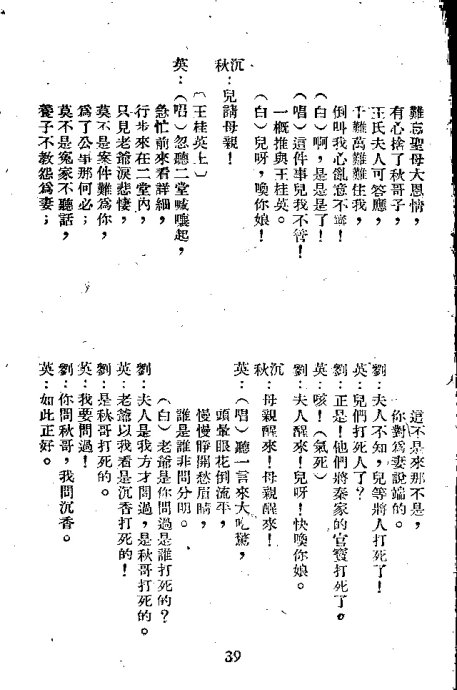 難忘聖母大恩情，
有心捨了秋哥子，
王氏夫人可答應，
千難萬難難住我，
倒叫我心亂意不寧！
（白）啊，是是是了！
（唱）這件事兒我不管！
一概推與王桂英。
（白）兒呀，喚你娘！
沉
秋：兒請母親！
（王桂英上）
英：（唱）忽聽二堂喊嚷起，
急忙前來看詳細，
行步來在二堂內，
只見老爺淚悲悽，
莫不是案件難爲你，
爲了公事那何必；
莫不是冤家不聽話，
養子不教怨爲妻；
這不是來那不是，
你對爲妻說端的。
劉：夫人不知，兒等將人打死了！
英：兒們打死人了？
劉：正是！他們將秦家的官寶打死了。
英：咳！（氣死）
劉：夫人醒來！兒呀！快喚你娘。
沉
秋：母親醒來！母親醒來！
英：（唱）聽一言來大吃驚，
頭暈眼花倒流平，
慢慢睜開愁眉睛，
誰是誰非問分明。
（白）老爺是你問過是誰打死的？
劉：夫人是我方才問過，是秋哥打死的。
英：老爺以我看是沉香打死的！
劉：是秋哥打死的。
英：我要問過！
劉：你問秋哥，我問沉香。
英：如此正好。
39